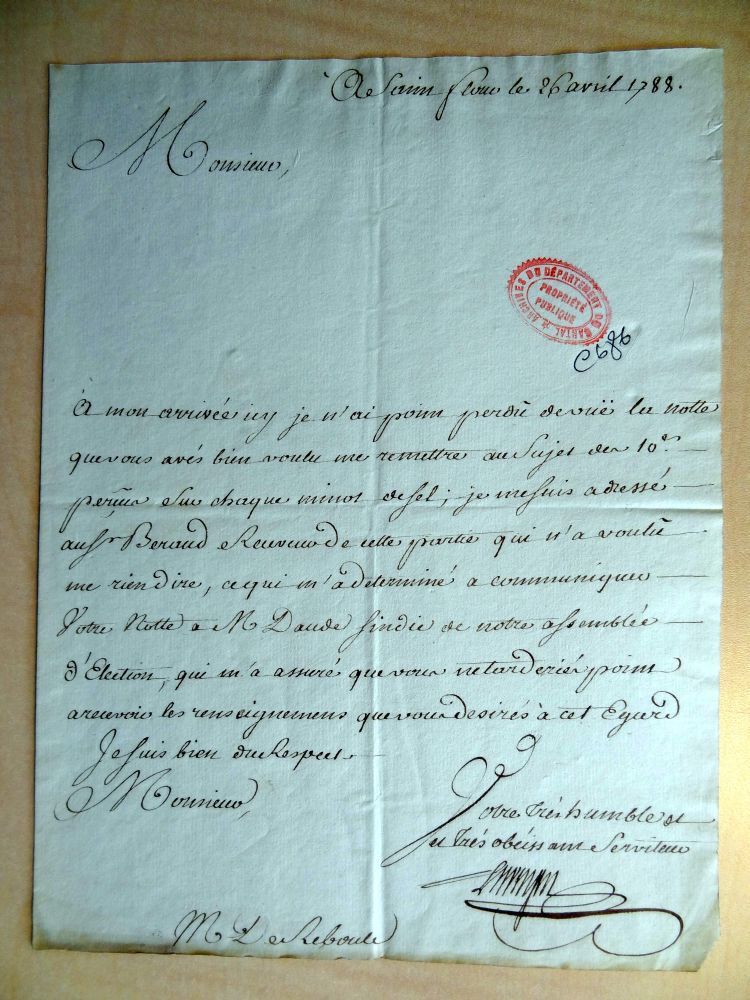 A Saint flour le 26 avril 1788.
Monsieur,
ARCHIVES DU DÉPARTEMENT DU CANTAL
PROPRIÉTÉ
PUBLIQUE
C686
A mon arrivée icy je n'ai point perdu de vuë la notte
que vous avés bien voulu me remettre au Sujet des 10.s
perçus Sur chaque minot de sel; je me suis adressé
au Sr. Beraud Receveur de cette partie qui n'a voulu
me rien dire, ce qui m'a determiné a communiquer
Votre Notte a M. Daude Sindic de notre assemblée
d'Election, qui m'a assuré que vous ne tarderiés point
a recevoir les renseignemens que vous desirés à cet Egard
Je suis bien du Respect
Monsieur,
Votre trés humble et
et trés obéissant Serviteur
M. De Reboule